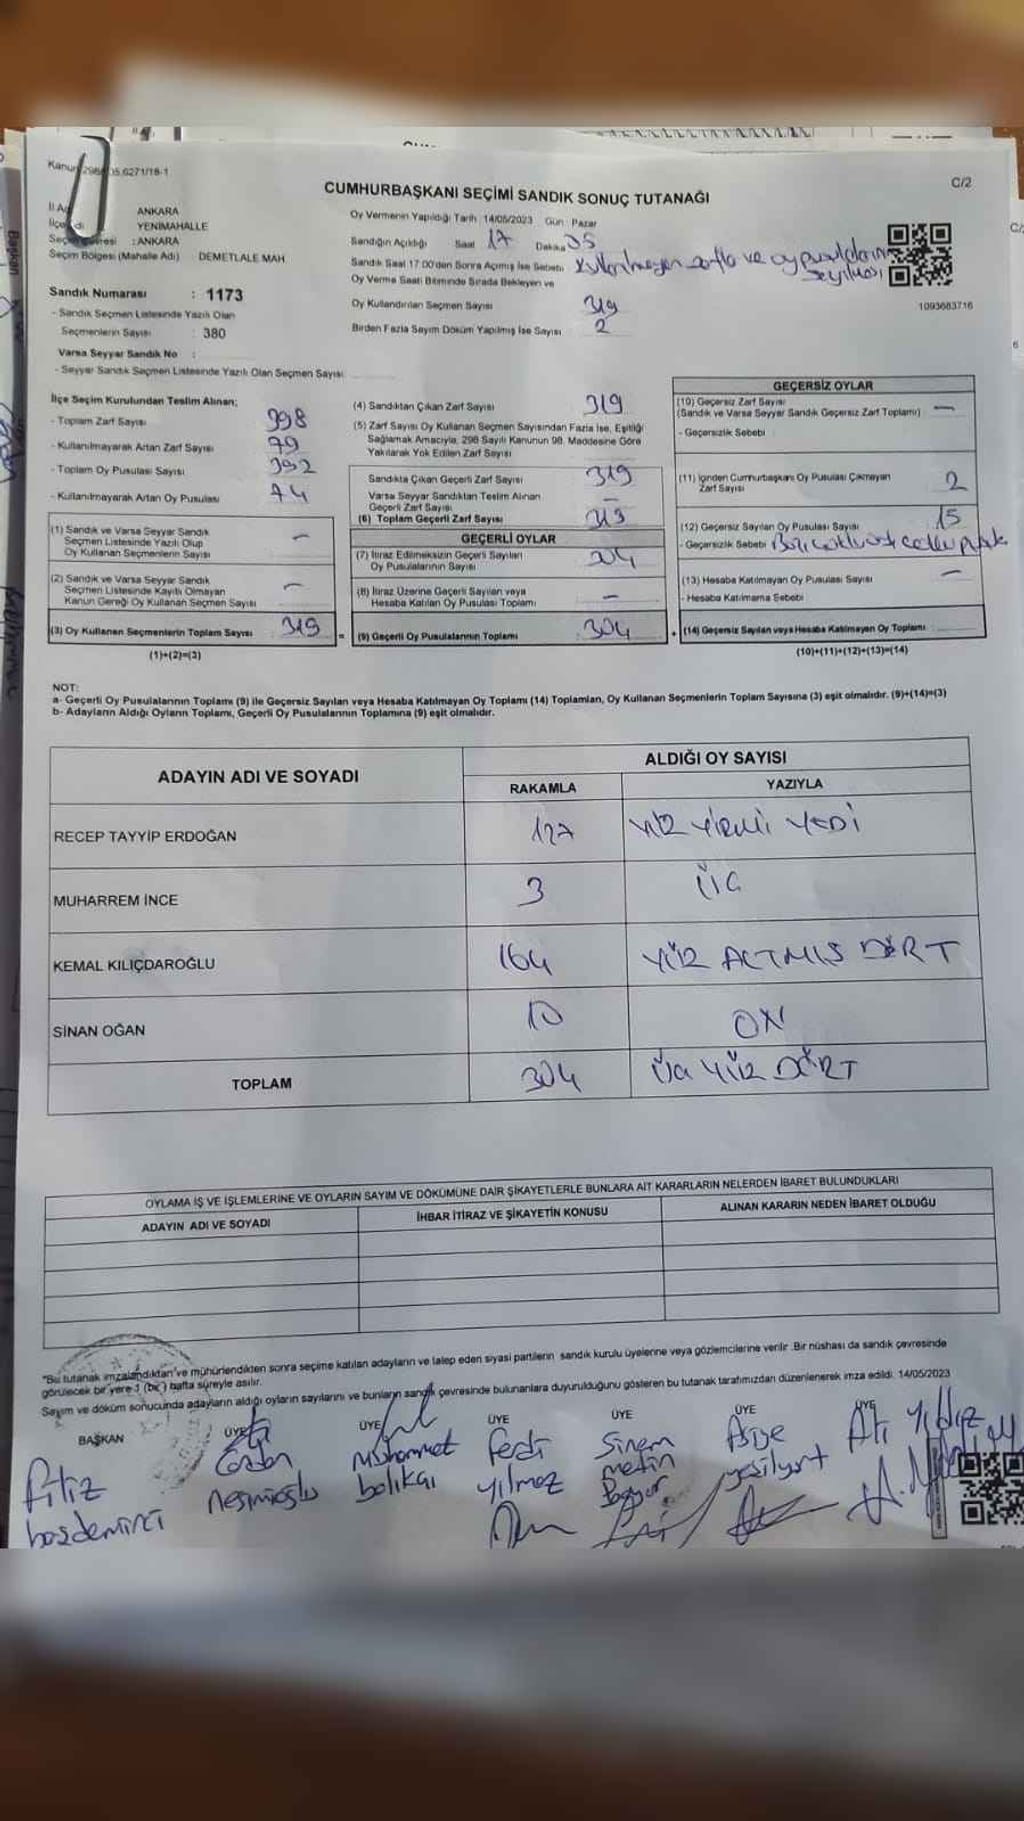 C/2
CUMHURBAŞKANI SEÇİMİ SANDIK SONUÇ TUTANAĞI
ANKARA
YENİMAHALLE
: ANKARA
Seçim Bölgesi (Mahalle Adı) : DEMETLALE MAH
Sandık Numarası : 1173
- Sandık Seçmen Listesinde Yazılı Olan
Seçmenlerin Sayısı : 380
Varsa Seyyar Sandık No :
- Seyyar Sandık Seçmen Listesinde Yazılı Olan Seçmen Sayısı
Oy Vermenin Yapıldığı Tarih :14/05/2023 Gün : Pazar
Sandığın Açıldığı Saat 17 Dakika 05
Sandık Saat 17:00'den Sonra Açılmış İse Sebebi Kullanılmayan zarfla ve oy pusulalarının sayılması
Oy Verme Saati Bitiminde Sırada Bekleyen ve
Oy Kullandırılan Seçmen Sayısı 319
Birden Fazla Sayım Döküm Yapılmış İse Sayısı 2
1093683716
İlçe Seçim Kurulundan Teslim Alınan;
- Toplam Zarf Sayısı 398
- Kullanılmayarak Artan Zarf Sayısı 79
- Toplam Oy Pusulası Sayısı 392
- Kullanılmayarak Artan Oy Pusulası 74
(1) Sandık ve Varsa Seyyar Sandık
Seçmen Listesinde Yazılı Olup
Oy Kullanan Seçmenlerin Sayısı –
(2) Sandık ve Varsa Seyyar Sandık
Seçmen Listesinde Kayıtlı Olmayan
Kanun Gereği Oy Kullanan Seçmen Sayısı –
(3) Oy Kullanan Seçmenlerin Toplam Sayısı 319
(1)+(2)=(3)
(4) Sandıktan Çıkan Zarf Sayısı 319
(5) Zarf Sayısı Oy Kullanan Seçmen Sayısından Fazla İse, Eşitliği
Sağlamak Amacıyla, 298 Sayılı Kanunun 98. Maddesine Göre
Yakılarak Yok Edilen Zarf Sayısı
Sandıkta Çıkan Geçerli Zarf Sayısı 319
Varsa Seyyar Sandıktan Teslim Alınan
Geçerli Zarf Sayısı –
(6) Toplam Geçerli Zarf Sayısı 319
GEÇERLİ OYLAR
(7) İtiraz Edilmeksizin Geçerli Sayılan
Oy Pusulalarının Sayısı 304
(8) İtiraz Üzerine Geçerli Sayılan veya
Hesaba Katılan Oy Pusulası Toplamı –
= (9) Geçerli Oy Pusulalarının Toplamı 304
GEÇERSİZ OYLAR
(10) Geçersiz Zarf Sayısı
(Sandık ve Varsa Seyyar Sandık Geçersiz Zarf Toplamı) –
- Geçersizlik Sebebi
(11) İçinden Cumhurbaşkanı Oy Pusulası Çıkmayan
Zarf Sayısı 2
(12) Geçersiz Sayılan Oy Pusulası Sayısı 15
- Geçersizlik Sebebi
(13) Hesaba Katılmayan Oy Pusulası Sayısı –
- Hesaba Katılmama Sebebi
+ (14) Geçersiz Sayılan veya Hesaba Katılmayan Oy Toplamı
(10)+(11)+(12)+(13)=(14)
NOT:
a- Geçerli Oy Pusulalarının Toplamı (9) ile Geçersiz Sayılan veya Hesaba Katılmayan Oy Toplamı (14) Toplamları, Oy Kullanan Seçmenlerin Toplam Sayısına (3) eşit olmalıdır. (9)+(14)=(3)
b- Adayların Aldığı Oyların Toplamı, Geçerli Oy Pusulalarının Toplamına (9) eşit olmalıdır.
ADAYIN ADI VE SOYADI
ALDIĞI OY SAYISI
RAKAMLA YAZIYLA
RECEP TAYYİP ERDOĞAN 127 YÜZ YİRMİ YEDİ
MUHARREM İNCE 3 ÜÇ
KEMAL KILIÇDAROĞLU 164 YÜZ ALTMIŞ DÖRT
SİNAN OĞAN 10 ON
TOPLAM 304 ÜÇ YÜZ DÖRT
OYLAMA İŞ VE İŞLEMLERİNE VE OYLARIN SAYIM VE DÖKÜMÜNE DAİR ŞİKAYETLERLE BUNLARA AİT KARARLARIN NELERDEN İBARET BULUNDUKLARI
ADAYIN ADI VE SOYADI İHBAR İTİRAZ VE ŞİKAYETİN KONUSU ALINAN KARARIN NEDEN İBARET OLDUĞU
"Bu tutanak imzalandıktan ve mühürlendikten sonra seçime katılan adayların ve talep eden siyasi partilerin sandık kurulu üyelerine veya gözlemcilerine verilir. Bir nüshası da sandık çevresinde
görülecek bir yere 1 (bir) hafta süreyle asılır.
Sayım ve döküm sonucunda adayların aldığı oyların sayılarını ve bunların sandık çevresinde bulunanlara duyurulduğunu gösteren bu tutanak tarafımızdan düzenlenerek imza edildi. 14/05/2023
BAŞKAN ÜYE ÜYE ÜYE ÜYE ÜYE ÜYE
Filiz bozdemirci
Muhammet
Fedi yılmaz
Sinem metin
Asiye yeşilyurt
Ali yıldız